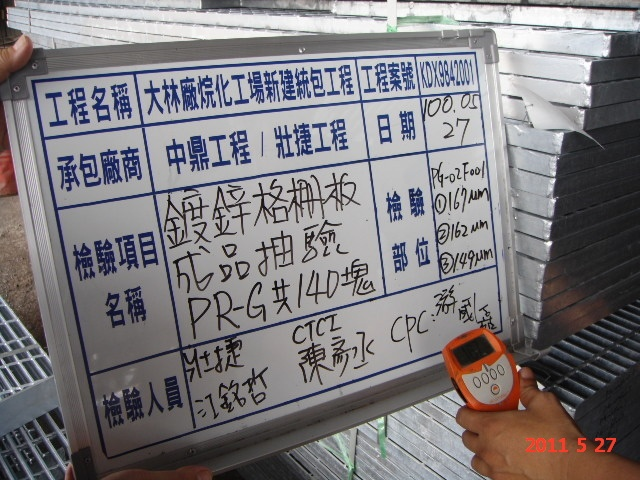 工程名稱 大林廠烷化工場新建統包工程 工程案號 KDX9842001
承包廠商 中鼎工程 / 壯捷工程 日期 100.05
27
檢驗項目
名稱
鍍鋅格柵板
成品抽驗
PR-G共140塊
檢驗
部位
PG-02F001
①167μm
②162μm
③149μm
檢驗人員
壯捷
江銘哲
CTCI
陳彥丞
CPC:游威
2011 5 27